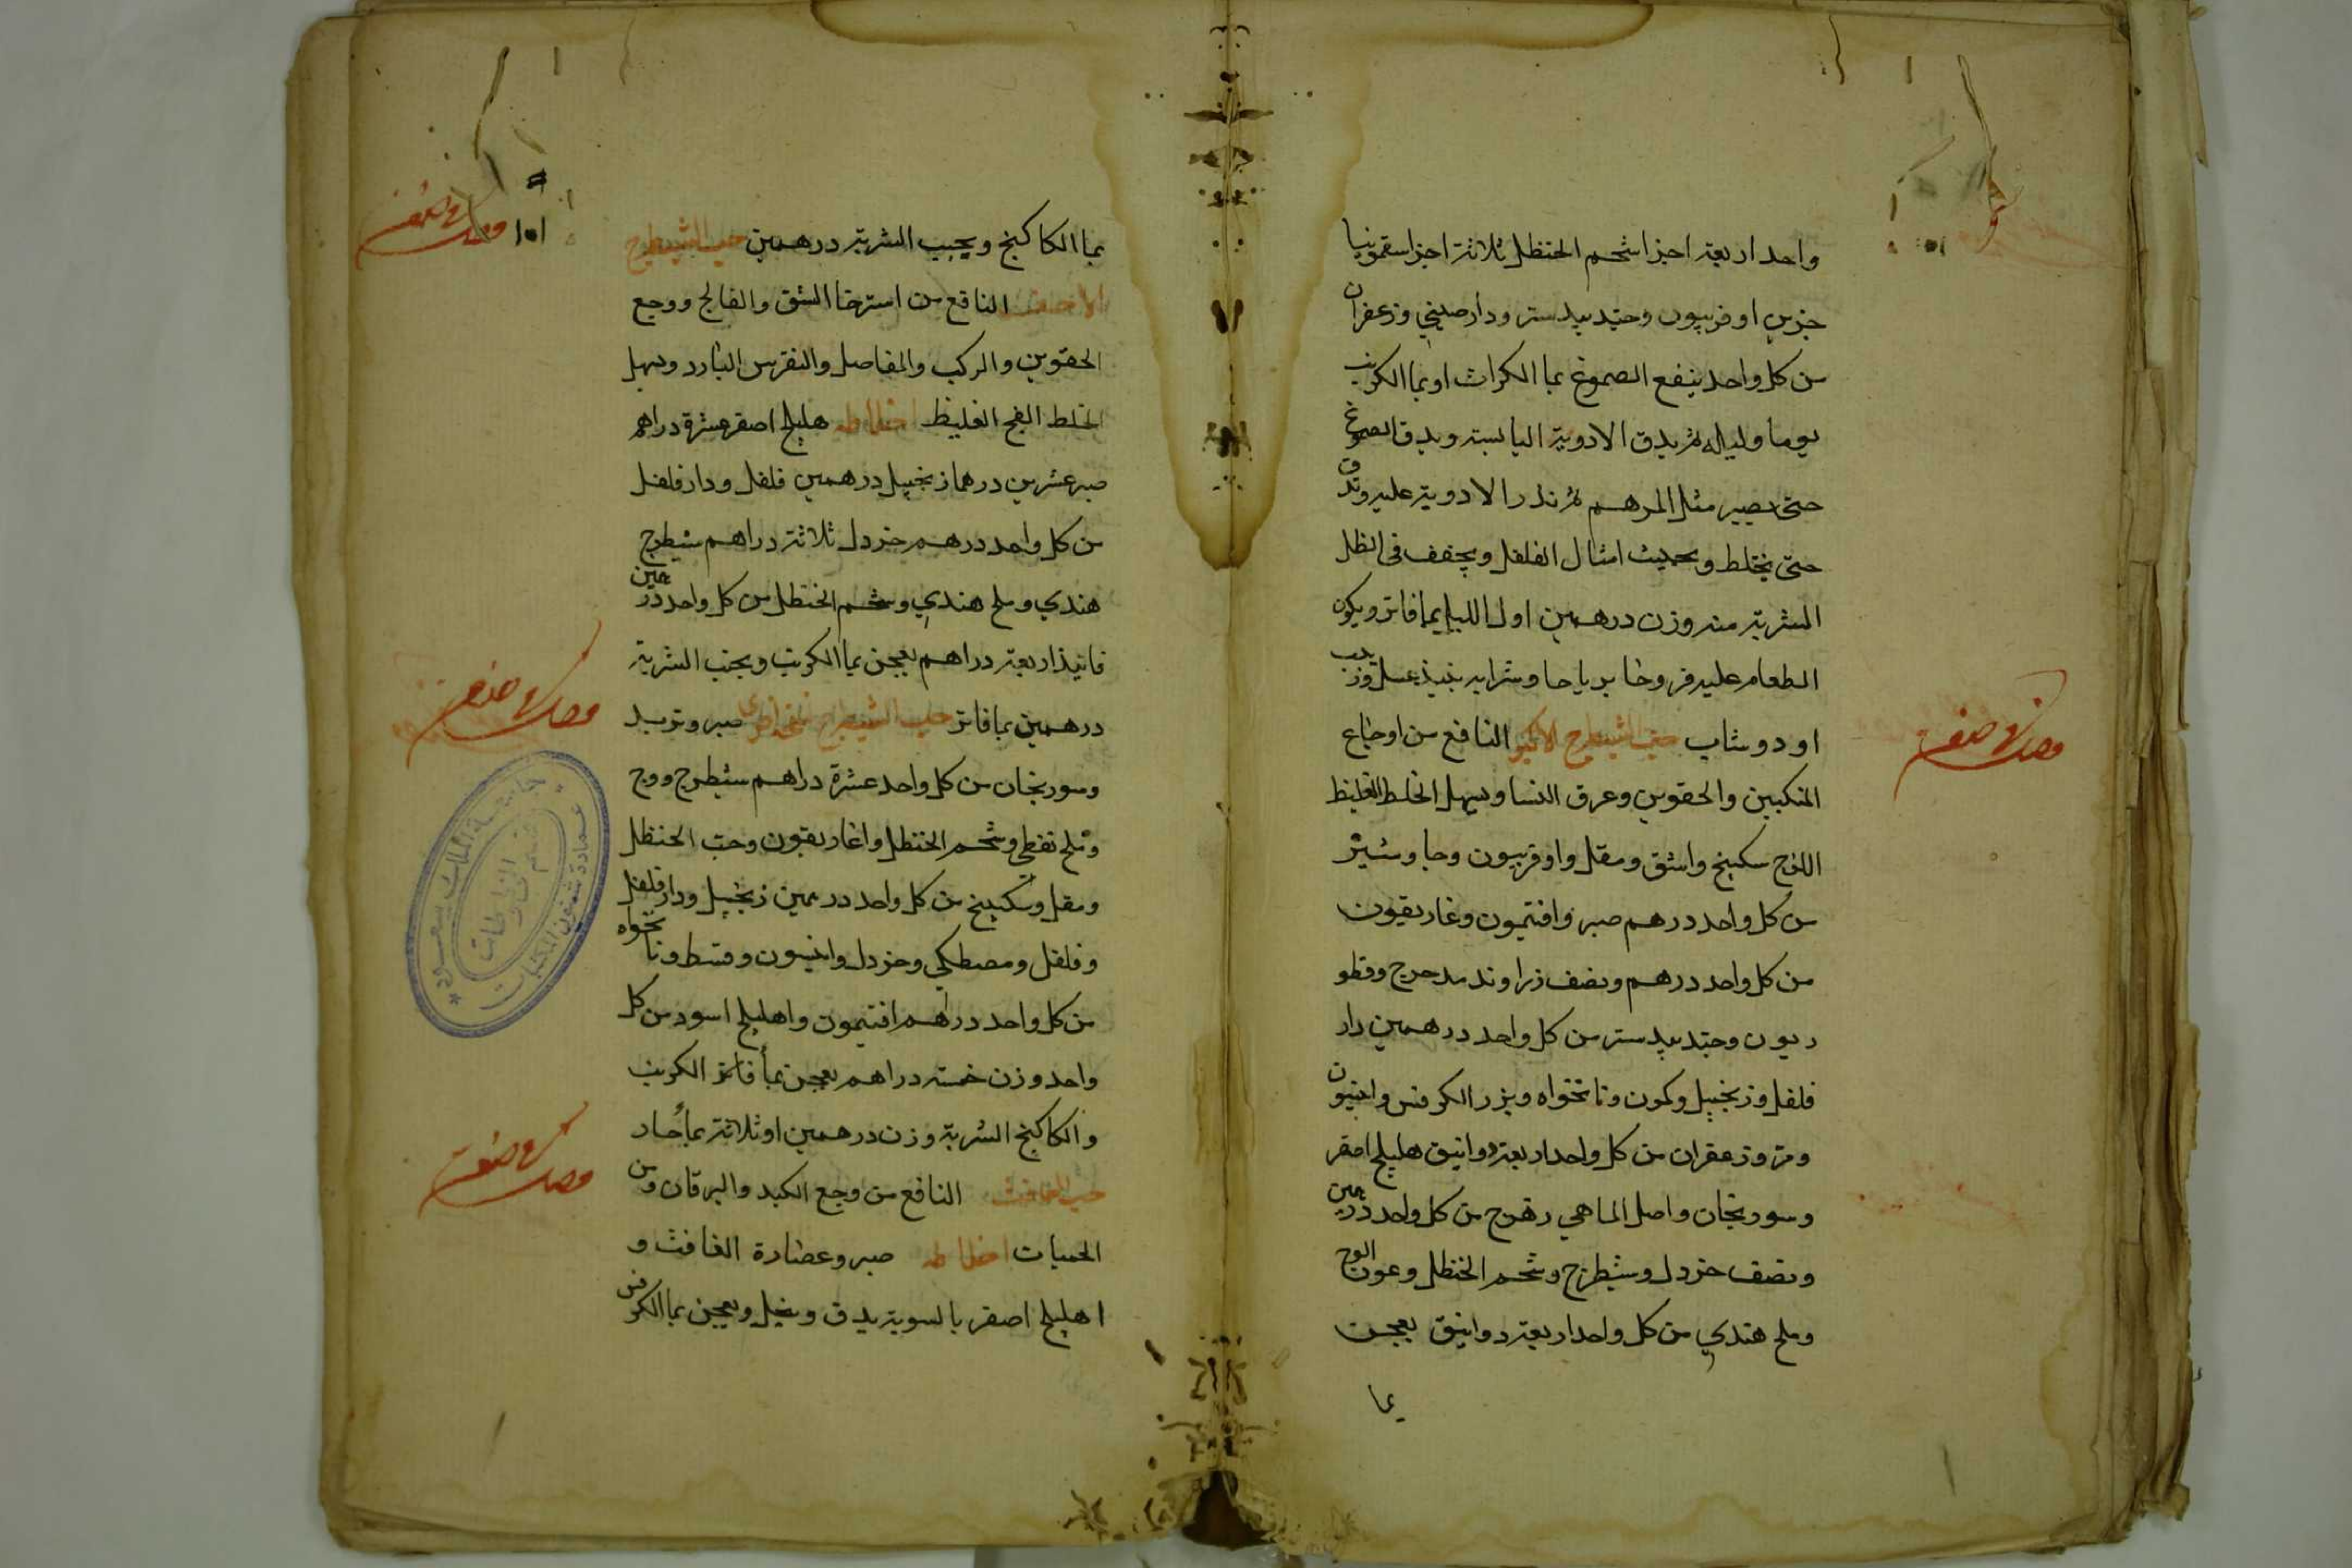 واحد اربعة اجزا شحم الحنظل ثلاثة اجزا سقمونيا
جزين اوفربيون وجندبيدستر ودارصيني وزعفران
من كل واحد ينقع الصموغ بما الكراث او بما الكرنب
يوما وليله ثم يدق الادوية اليابسة ويدق الصموغ
حتى يصير مثل المرهم ثم تذر الادوية عليه وتدق
حتى يختلط ويحبب امثال الفلفل ويجفف فى الظل
الشربة منه وزن درهمين اول الليل بما فاتر ويكون
الطعام عليه فروخا برباجا وشرابه نبيذ عسل وزبيب
او دوشاب حب الشيطرج الاكبر النافع من اوجاع
المنكبين والحقوين وعرق النسا ويسهل الخلط الغليظ
اللزج سكبينج واشق ومقل واوفربيون وجاوشير
من كل واحد درهم صبر وافتيمون وغاريقون
من كل واحد درهم ونصف زراوند مدحرج وقنطو
ريون وجندبيدستر من كل واحد درهمين دار
فلفل وزنجبيل وكمون ونانخواه وبزر الكرفس وانيسون
ومر وزعفران من كل واحد اربعة دوانيق هليلج اصفر
وسورنجان واصل الماهي زهرج من كل واحد درهمين
ونصف خردل وشيطرج وشحم الحنظل وعود الوج
وملح هندي من كل واحد اربعة دوانيق يعجن
بما
بما الكاكنج ويحبب الشربة درهمين حب الشيطرج
الاصغر النافع من استرخا الشق والفالج ووجع
الحقوين والركب والمفاصل والنقرس البارد ويسهل
الخلط الفج الغليظ اخلاطه هليلج اصفر عشرة دراهم
صبر عشرين درهما زنجبيل درهمين فلفل ودارفلفل
من كل واحد درهم خردل ثلاثة دراهم شيطرج
هندي وملح هندي وشحم الحنظل من كل واحد درهمين
فانيذ اربعة دراهم يعجن بما الكرنب ويحبب الشربة
درهمين بما فاتر حب الشيطرج نسخة اخرى صبر وتربد
وسورنجان من كل واحد عشرة دراهم شيطرج ووج
وملح نفطي وشحم الحنظل واغاريقون وحب الحنظل
ومقل وسكبينج من كل واحد درهمين زنجبيل ودارفلفل
وفلفل ومصطكي وخردل وانيسون وقسط ونانخواه
من كل واحد درهم افتيمون واهليلج اسود من كل
واحد وزن خمسة دراهم يعجن بما الكرنب
والكاكنج الشربة وزن درهمين او ثلاثة بما حار
حب الغافث النافع من وجع الكبد واليرقان ومن
الحميات اخلاطه صبر وعصارة الغافث و
اهليلج اصفر بالسوية يدق وينخل ويعجن بما الكرفس
١٥١
جامعة الملك سعود
عمادة شئون المكتبات
قسم المخطوطات